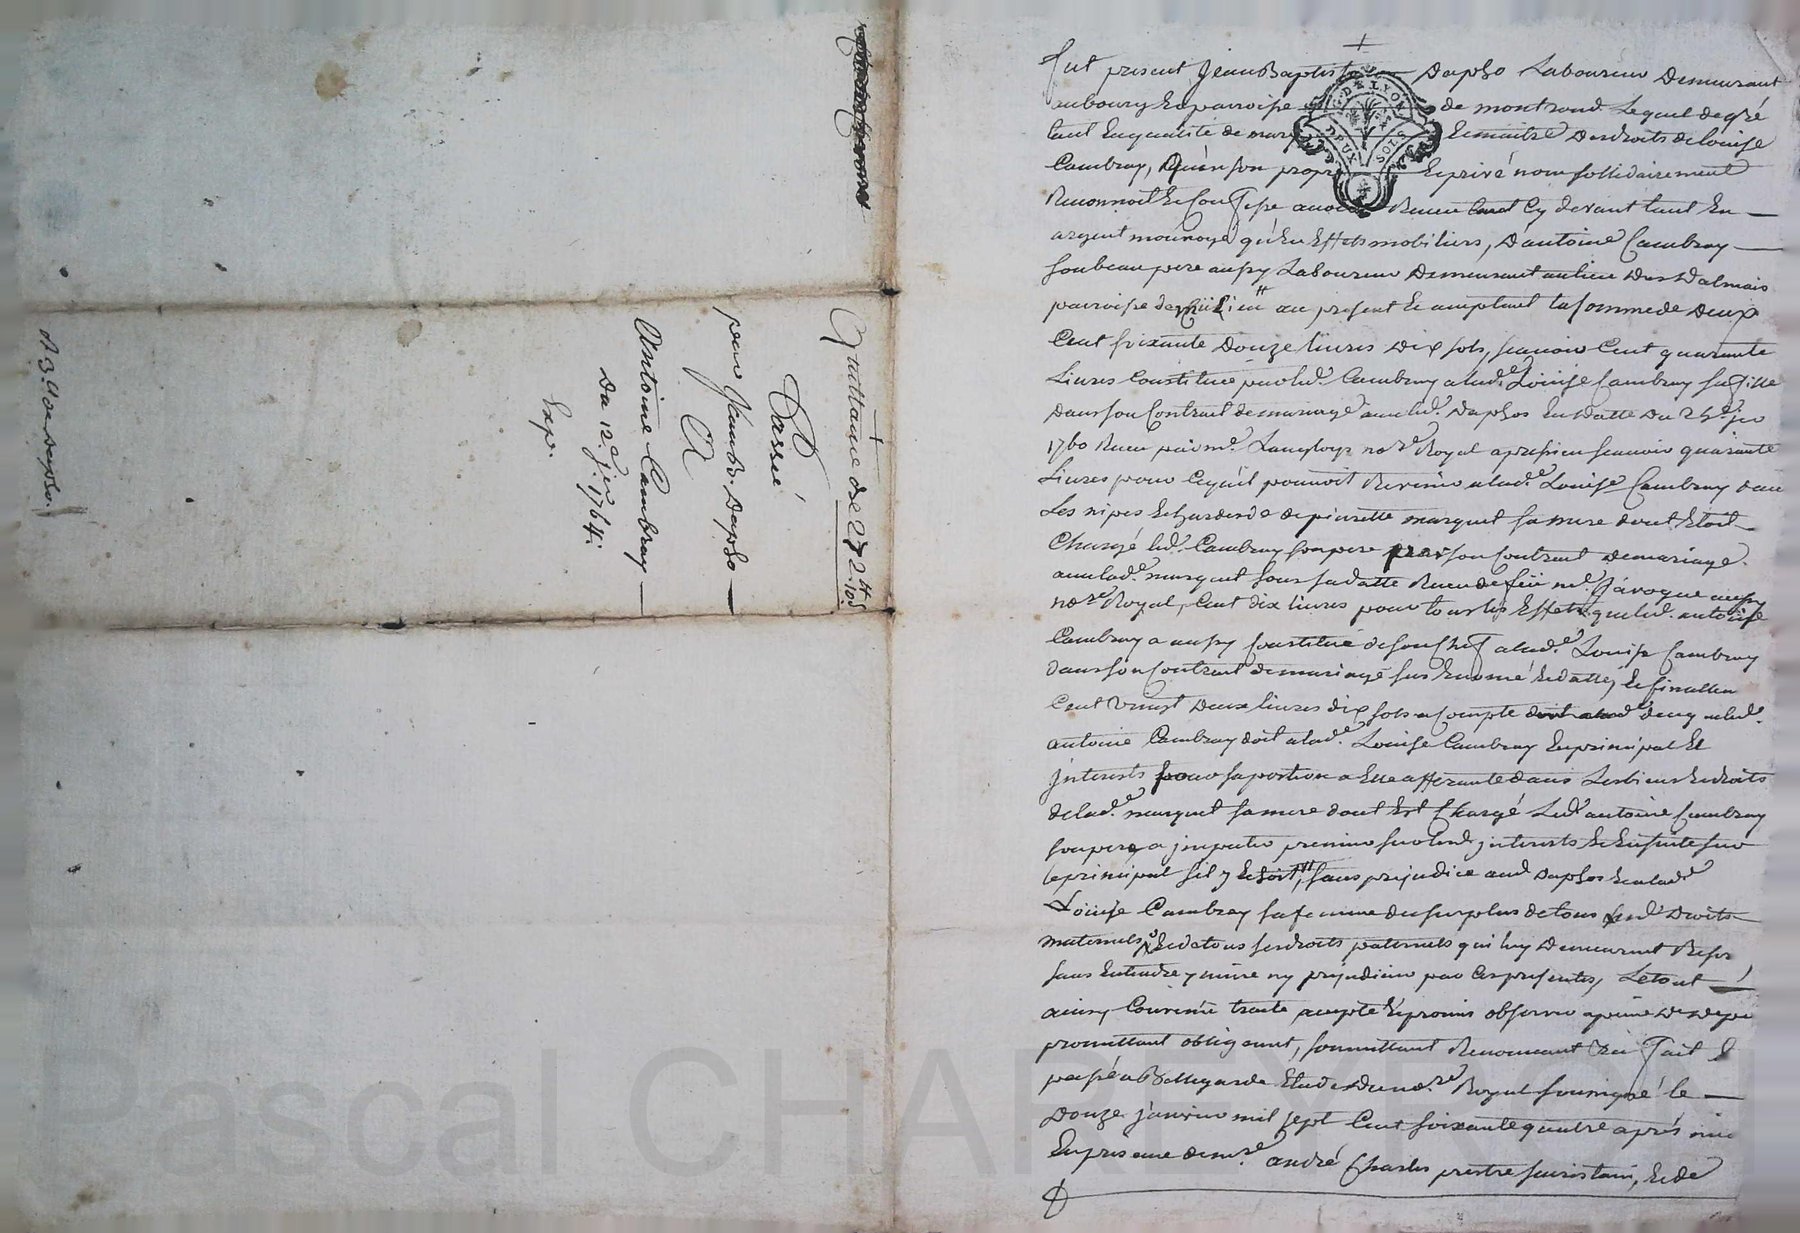 Quittance de 272ᵗᵗ 10ˢ
Passé
par Jean Bᵗᵉ DaphO
A
Antoine Cambray
Du 12ᵉ jer 1764.
Exp.
Fut present Jean Baptiste DaphO Laboureur Demeurant
aubourg & paroisse de montrond Lequel de gré
tant En qualité de mary Et maitre Des droits de Loüise
Cambray, Qu'en son propre Et privé nom sollidairement
Reconnoit Et Confesse avoir Receu Cy devant tant En
argent monnoyé qu'En Effets mobiliers, D'antoine Cambray
son beau pere aussy Laboureur Demeurant au lieu Des Dalmais
parroisse de au present Et acceptant la somme de Deux
Cent soixante Douze livres Dix sols, scavoir Cent quarante
Livres Constitué par led. Cambray a lad.ᵉ Loüise Cambray sa fille
Dans son Contract de mariage avec led. Daphos En datte Du jer
1760 Receu par mᵉ. noʳᵉ Royal a pressieu scavoir quarante
Livres pour Ce qu'il pouvoit Revenir a lad.ᵉ Loüise Cambray dans
Les nipes Et hardes de pierrette marquet sa mere dont Etoit
Chargé led. Cambray son pere par son Contract de mariage
avec lad.ᵉ marquet sous sa datte Receu de feü mᵉ Javogue aussy
noʳᵉ Royal, Cent dix livres pour tous les Effets que led. antoine
Cambray a aussy Constitué de son Chef a lad.ᵉ Loüise Cambray
dans son Contract de mariage sus Enoncé Et datté, Et finallem
Cent Vingt Deux livres dix sols a Compte de ce que led.
antoine Cambray doit a lad.ᵉ Loüise Cambray En principal Et
jnterests pour sa portion a Elle afferante dans Les biens Et droits
de lad.ᵉ marquet sa mere dont Est Chargé Led. antoine Cambray
son pere, a jmputer premier sur lesd. jnterests Et Ensuite sur
le principal s'il y Echoit, sans prejudice aud. Daphos Et a lad.ᵉ
Loüise Cambray sa femme du surplus de tous sesd. Droits
maternels, Et de tous ses droits paternels qui luy Demeurent Reser
sans Entendre y nuire ny prejudicier par Ces presentes, Le tout
ainsy Convenü traité accepté Et promis observer a peine De Depe
promettant obligeant, soumettant Renonceant &a Fait &
passé a Bellegarde Etude du noʳᵉ Royal soussigné le
Douze janvier mil sept Cent soixante quatre aprés mid
En presence de mʳᵉ andré Charles prestre societaire, Et de
G. DE LYON
DEUX SOLS
Pascal CHAREYRON